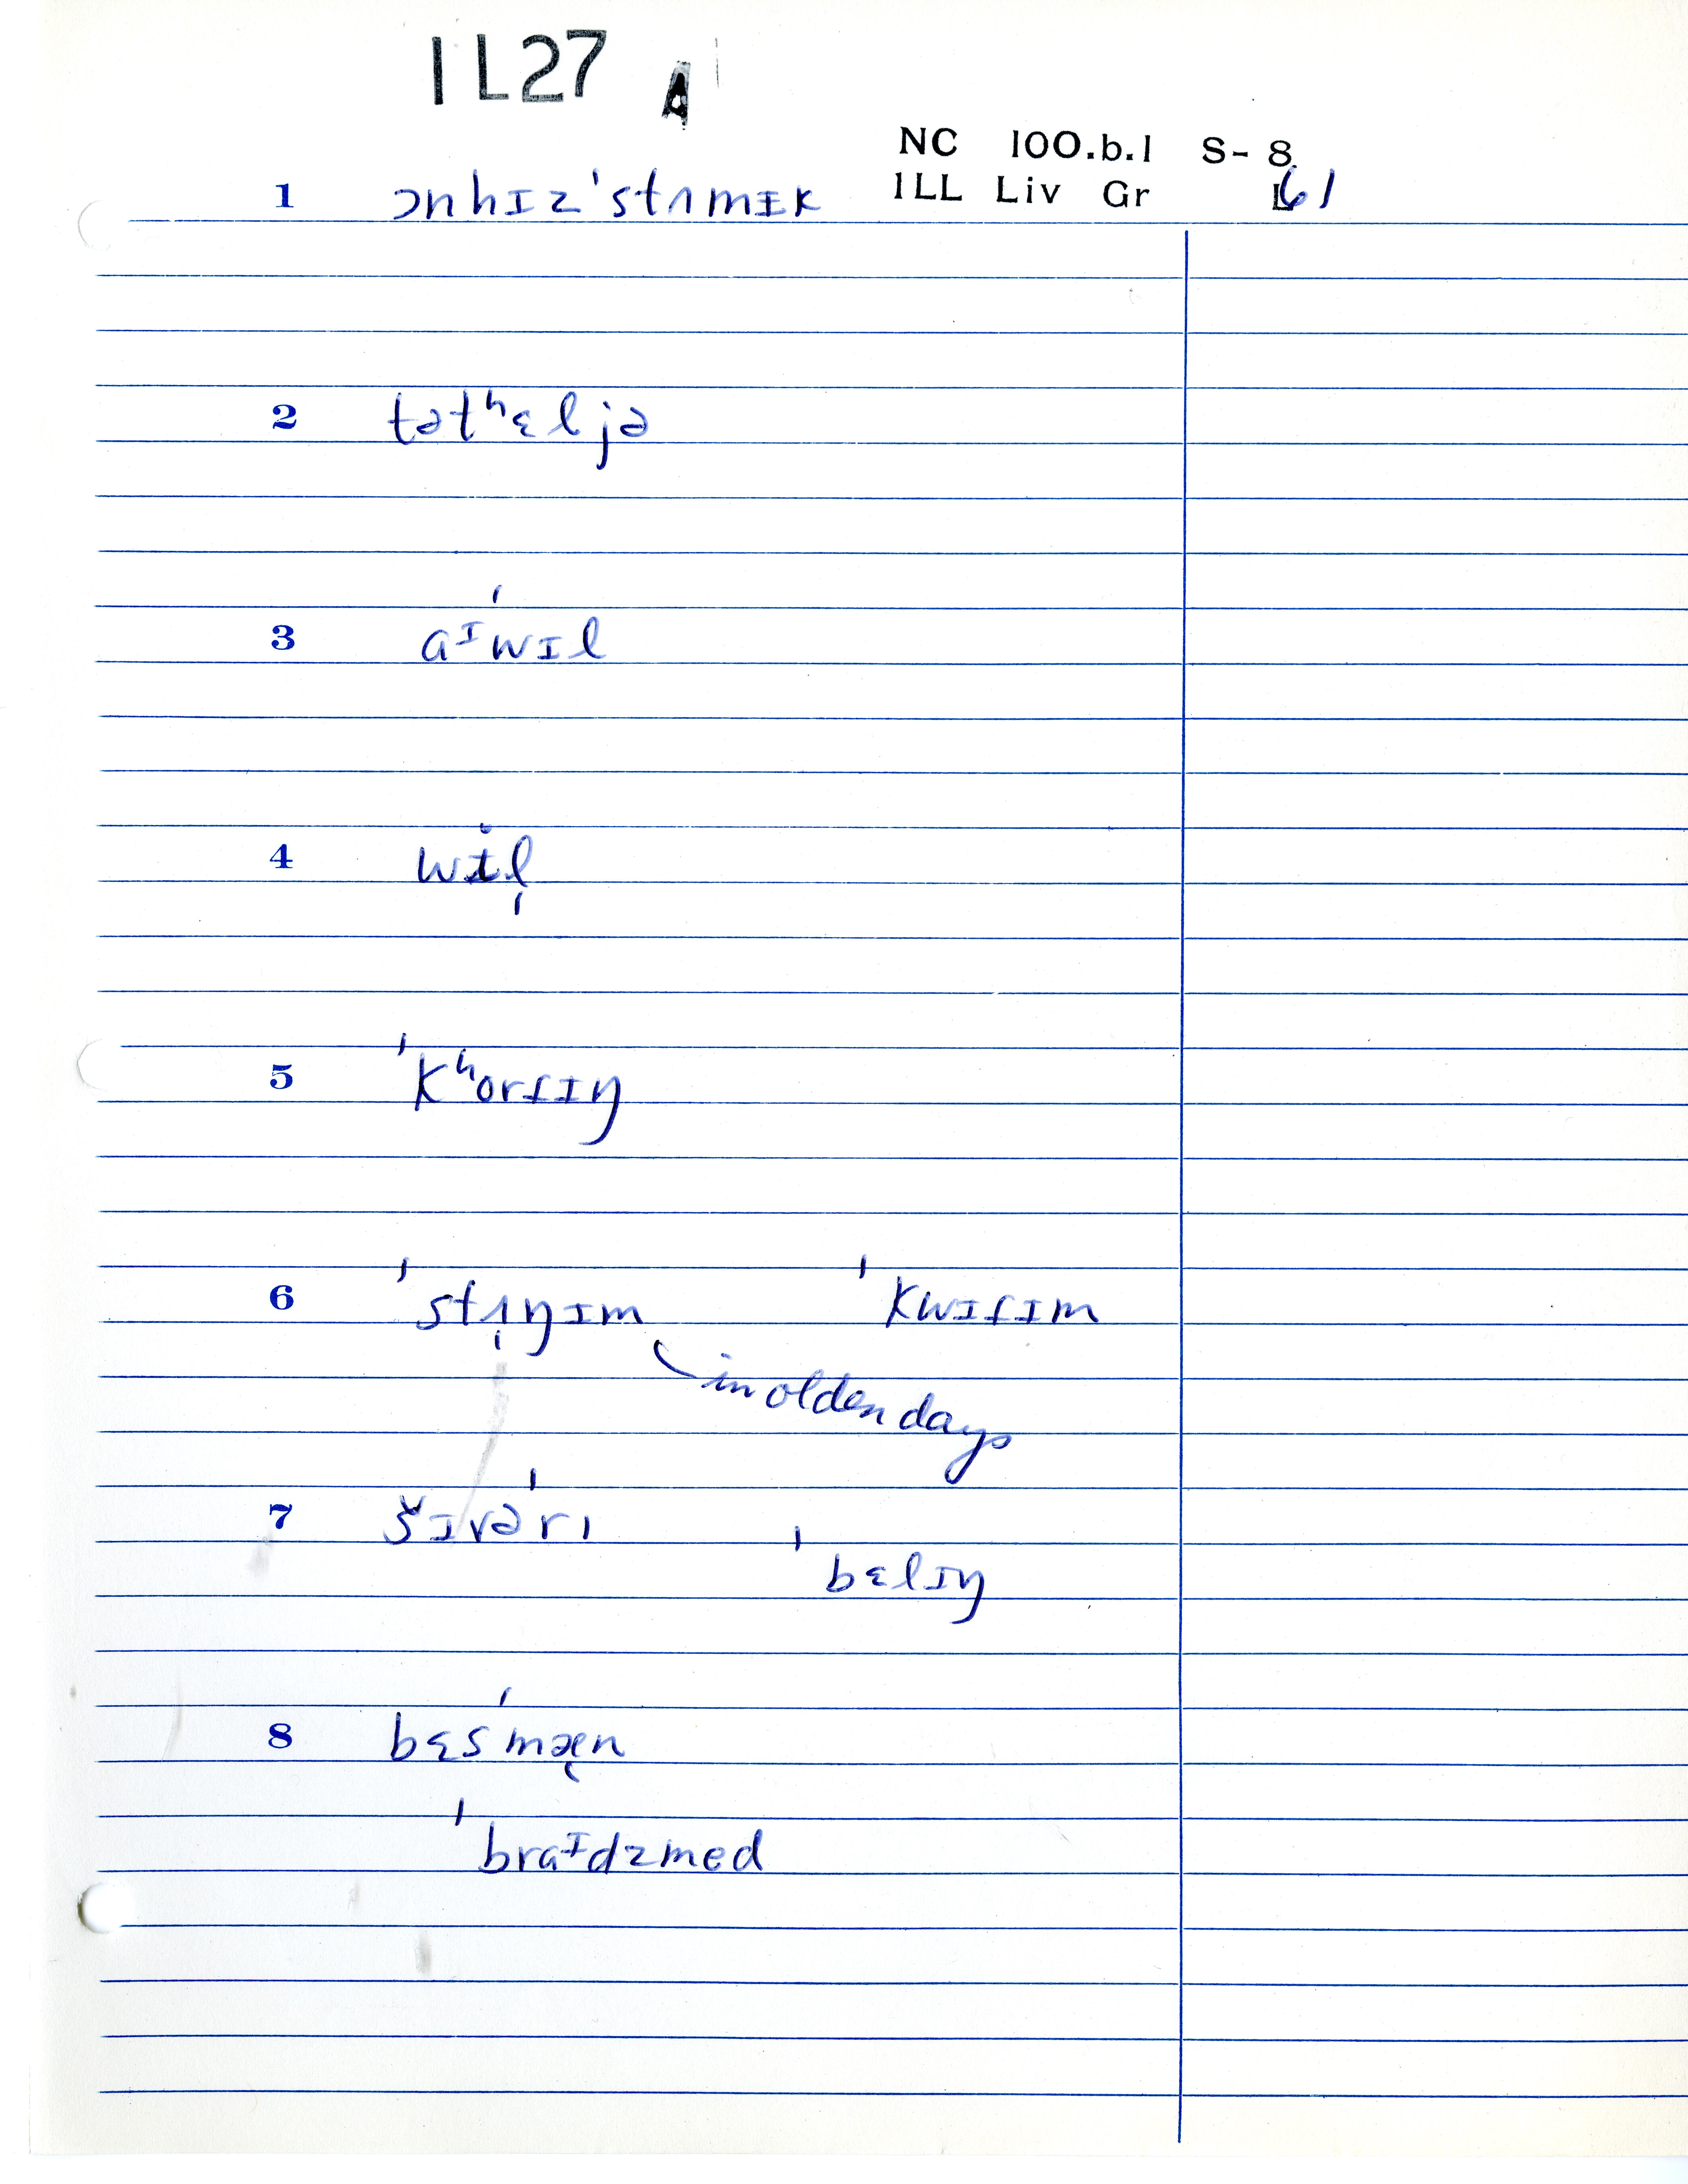 IL27 A
NC 100.b.1 S-8
ILL Liv Gr L61
1 ɔnhɪz'stʌmɪk
2 tətʰɛljə
3 aᴵ'wɪl
4 wɪl̩
5 'kʰorsɪŋ
6 'stʌ̩ŋɪm 'kwɪsɪm
in olden days
7 šɪvə'ri
'bɛlɪŋ
8 bɛs'mæ̨n
'braᴵdzmed